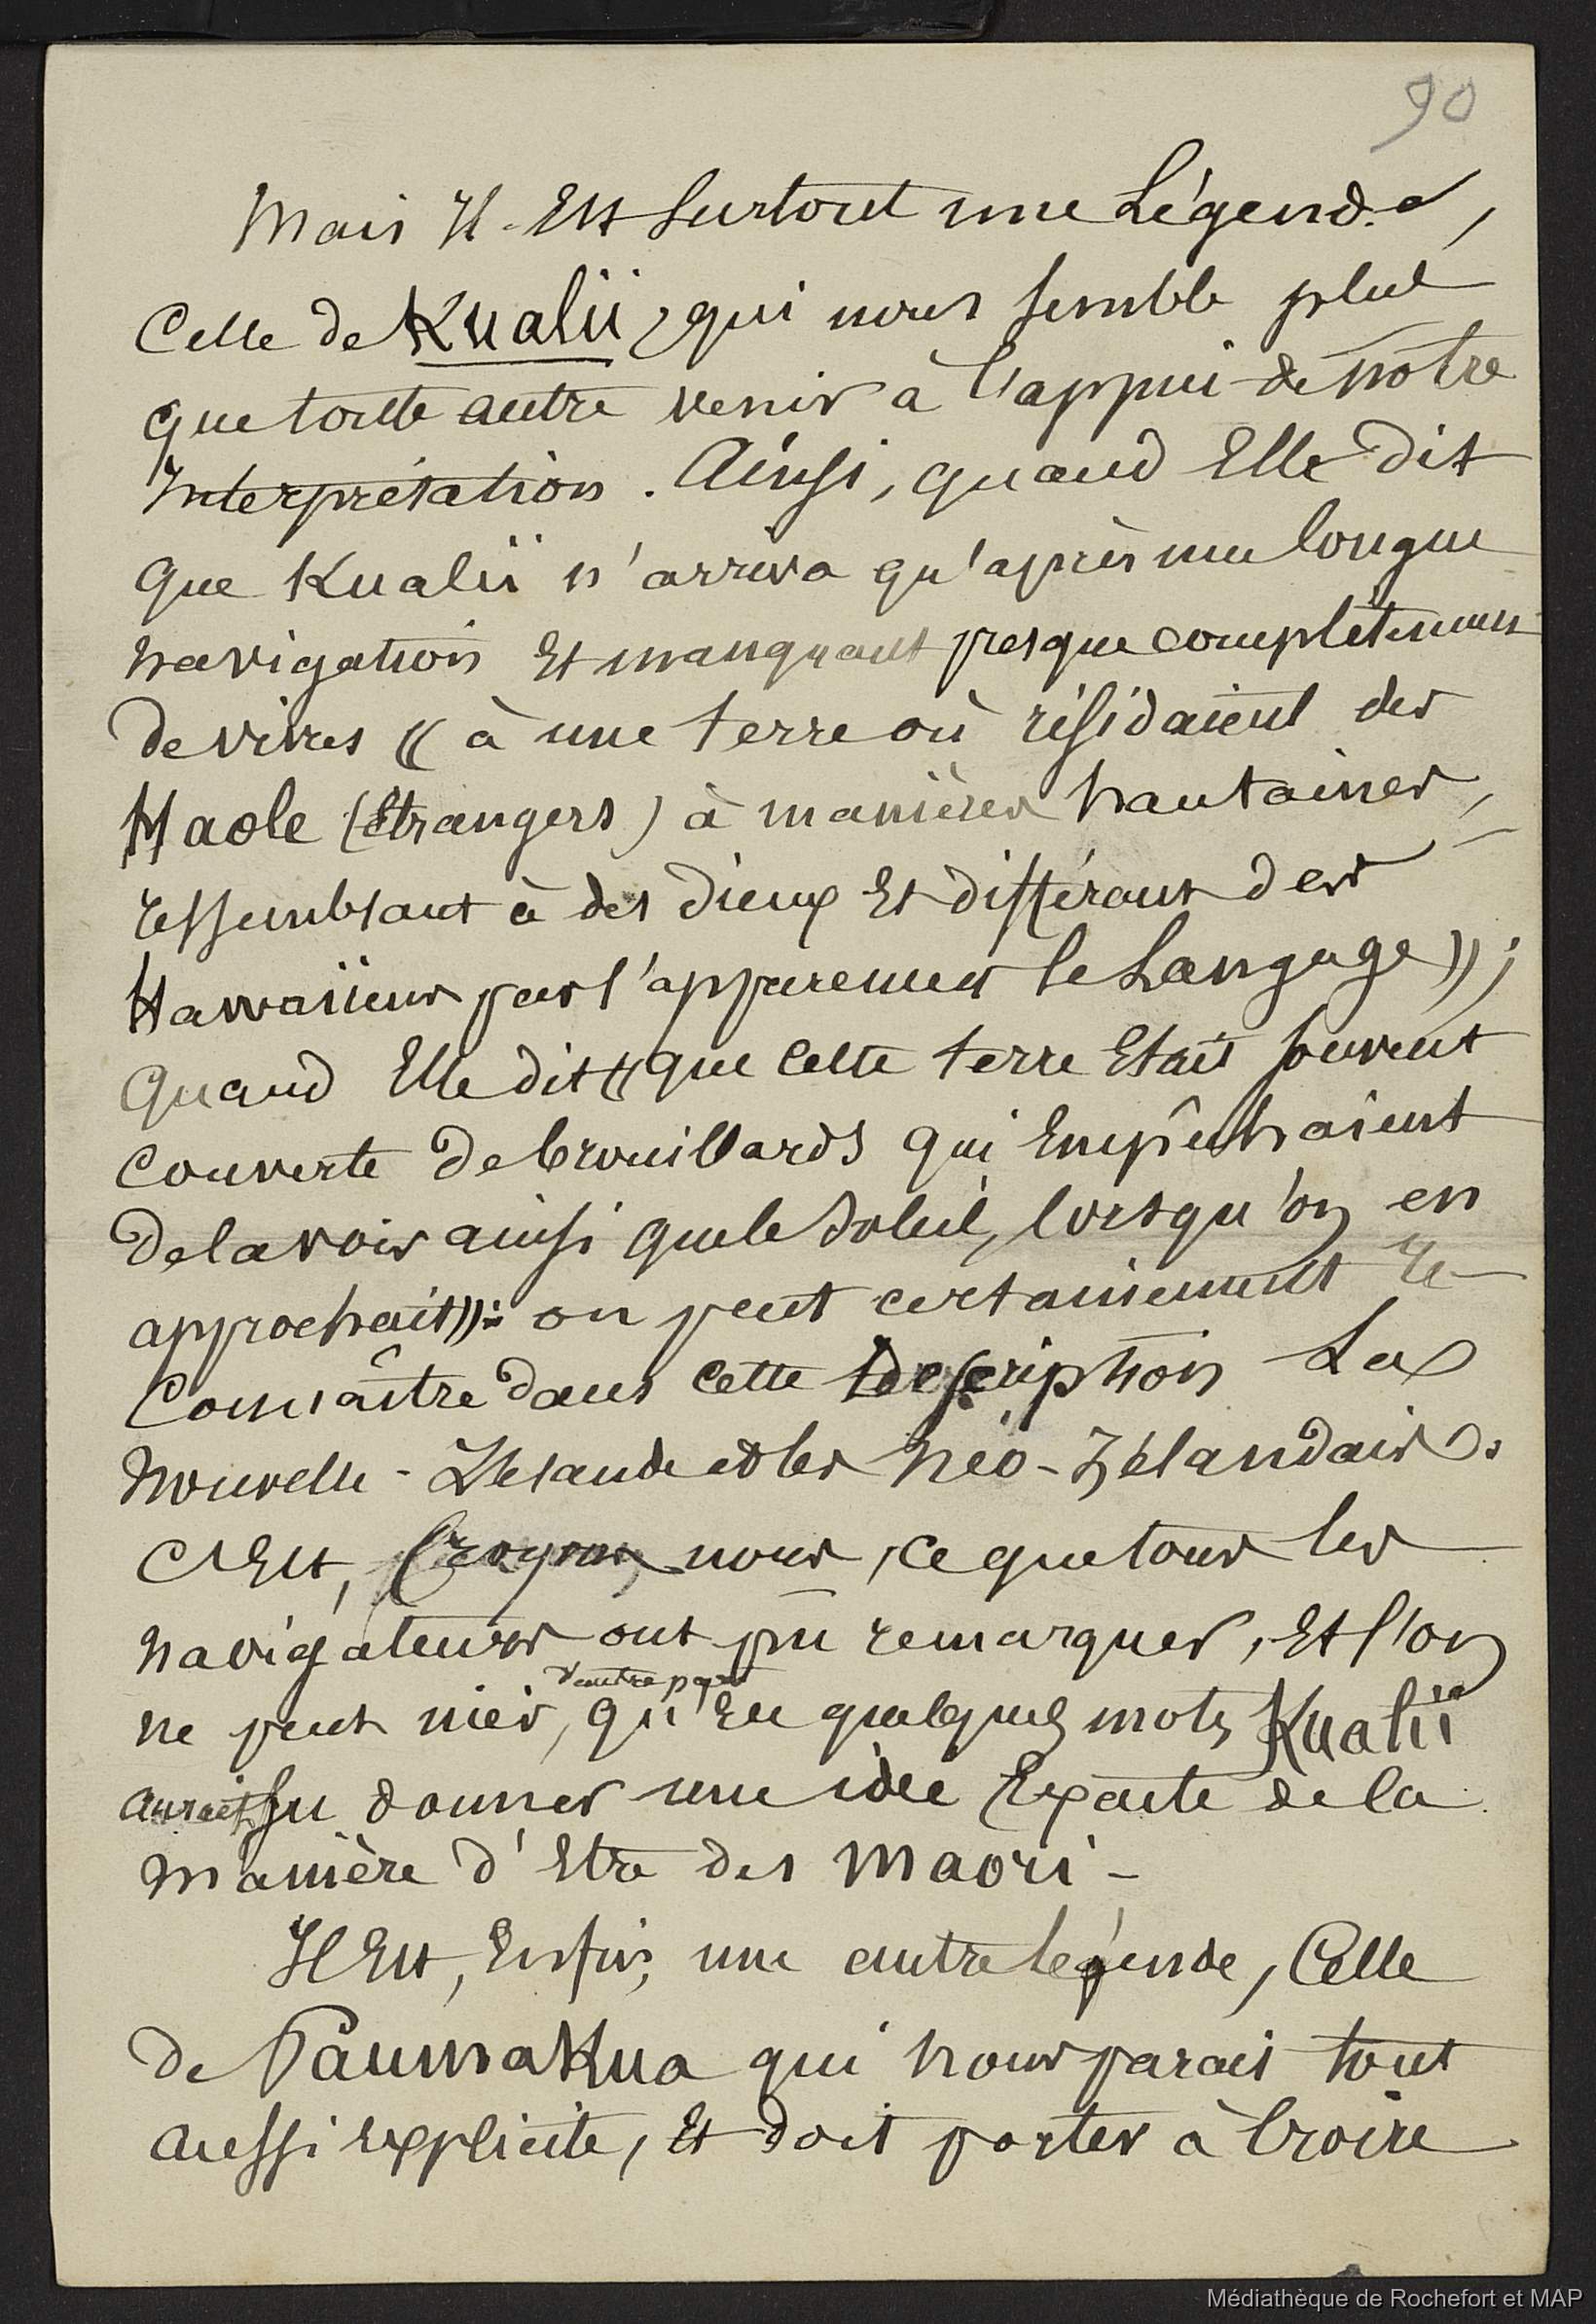 90
Mais Il Est surtout une Légende,
Celle de Kualii, qui nous semble plus
que toute autre venir à l'appui de notre
Interprétation. Ainsi, quand Elle dit
que Kualii n'arriva qu'après une longue
navigation Et manquant presque complètement
de vivres « à une terre où résidaient des
Haole (Etrangers) à manières hautaines,
ressemblant à des Dieux Et différant des
Hawaiiens par l'apparence et le Langage »;
Quand Elle dit « que cette terre Etait souvent
couverte de brouillards qui Empêchaient
de la voir ainsi que le Soleil, lorsqu'on en
approchait »: on peut certainement re-
connaître dans cette description La
Nouvelle-Zélande et les Néo-Zélandais.
C'Est, Croyons, nous, ce que tous les
navigateurs ont pu remarquer, Et l'on
d'autre part
ne peut nier, qu'En quelques mots Kualii
aurait su donner une idée Exacte de la
manière d'Etre des Maori -
Il Est, Enfin, une autre légende, Celle
de Paumakua qui nous parait tout
aussi explicite, Et doit porter à Croire
Médiathèque de Rochefort et MAP